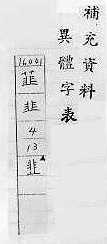 補充資料
異體字表
16001
韮
韭
4
13